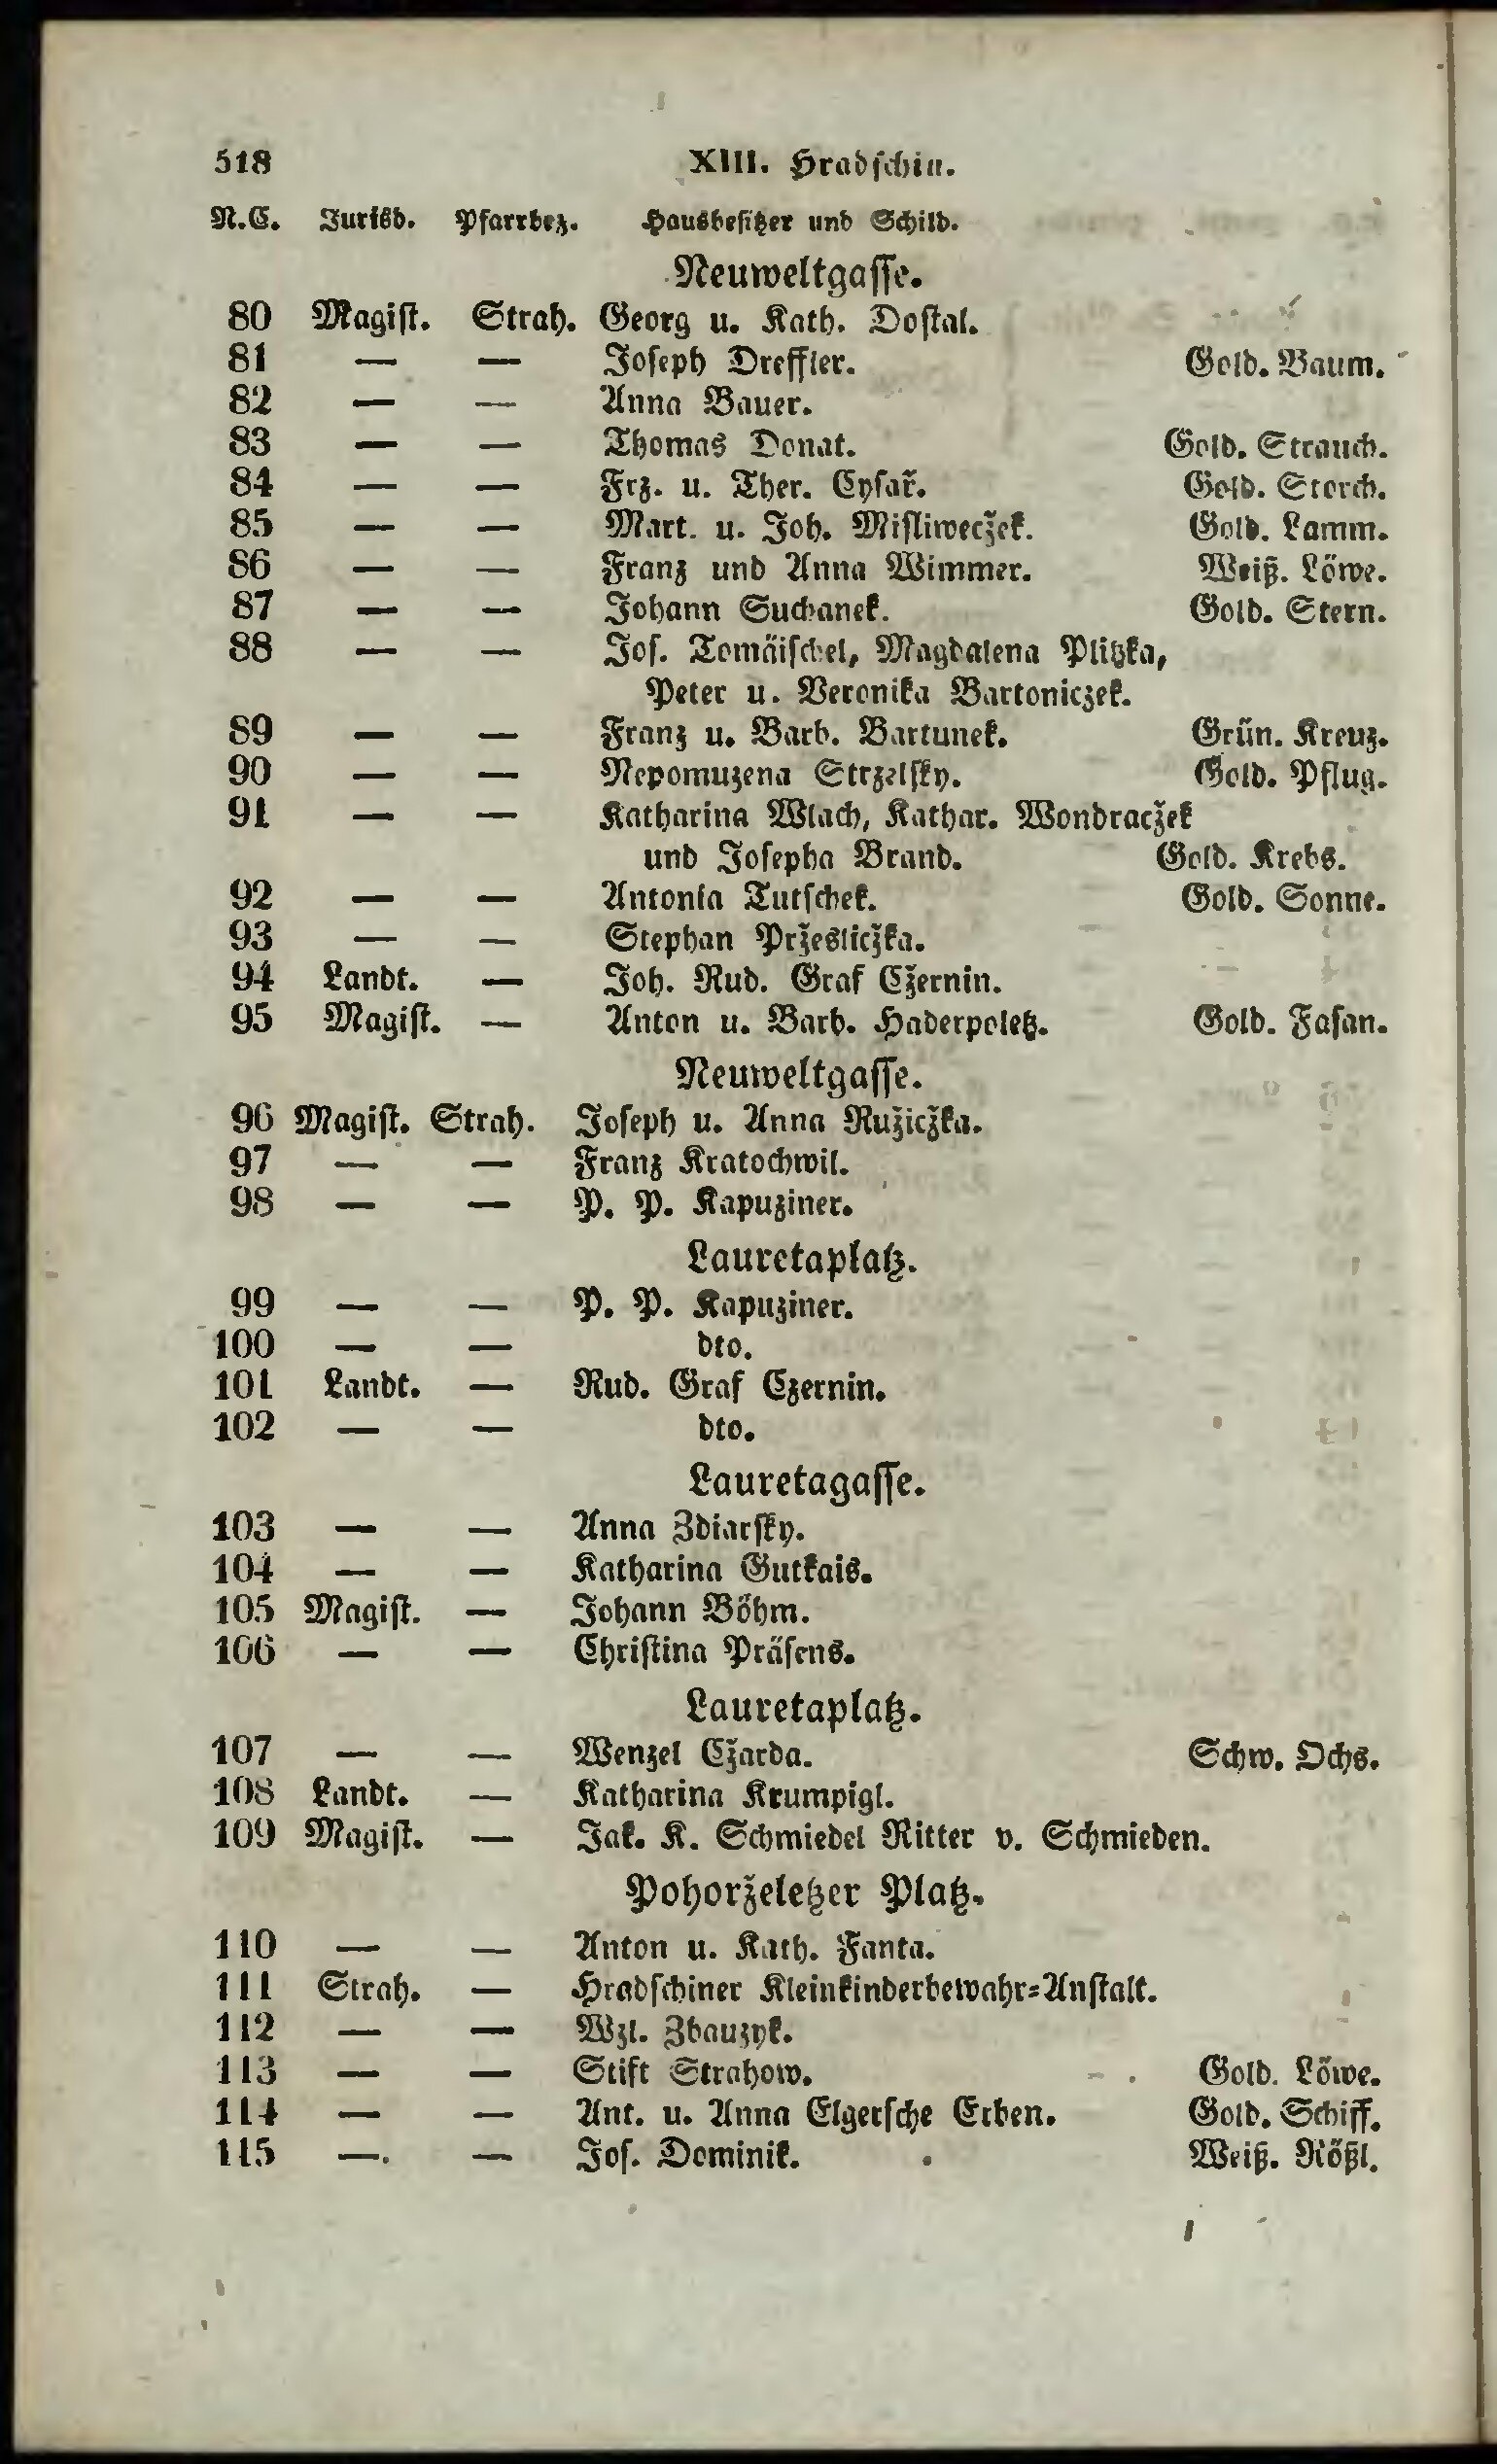 518 XIII. Hradschin.
N.C. Jurisd. Pfarrbez. Hausbesitzer und Schild.
Neuweltgasse.
80 Magist. Strah. Georg u. Kath. Dostal.
81 — — Joseph Dreffler. Gold. Baum.
82 — — Anna Bauer.
83 — — Thomas Donat. Gold. Strauch.
84 — — Frz. u. Ther. Cysař. Gold. Storch.
85 — — Mart. u. Joh. Misliweczžek. Gold. Lamm.
86 — — Franz und Anna Wimmer. Weiß. Löwe.
87 — — Johann Suchanek. Gold. Stern.
88 — — Jos. Tomäischel, Magdalena Plitzka,
Peter u. Veronika Bartoniczek.
89 — — Franz u. Barb. Bartunek. Grün. Kreuz.
90 — — Nepomuzena Strzelsky. Gold. Pflug.
91 — — Katharina Wlach, Kathar. Wondraczžek
und Josepha Brand. Gold. Krebs.
92 — — Antonia Tutschek. Gold. Sonne.
93 — — Stephan Pržesličžka.
94 Landt. — Joh. Rud. Graf Cžernin.
95 Magist. — Anton u. Barb. Haderpoletz. Gold. Fasan.
Neuweltgasse.
96 Magist. Strah. Joseph u. Anna Ružicžka.
97 — — Franz Kratochwil.
98 — — P. P. Kapuziner.
Lauretaplatz.
99 — — P. P. Kapuziner.
100 — — dto.
101 Landt. — Rud. Graf Czernin.
102 — — dto.
Lauretagasse.
103 — — Anna Zdiarsky.
104 — — Katharina Gutkais.
105 Magist. — Johann Böhm.
106 — — Christina Präsens.
Lauretaplatz.
107 — — Wenzel Cžarda. Schw. Ochs.
108 Landt. — Katharina Krumpigl.
109 Magist. — Jak. K. Schmiedel Ritter v. Schmieden.
Pohorželetzer Platz.
110 — — Anton u. Kath. Fanta.
111 Strah. — Hradschiner Kleinkinderbewahr=Anstalt.
112 — — Wzl. Zbauzyk.
113 — — Stift Strahow. Gold. Löwe.
114 — — Ant. u. Anna Elgersche Erben. Gold. Schiff.
115 — — Jos. Dominik. Weiß. Rößl.